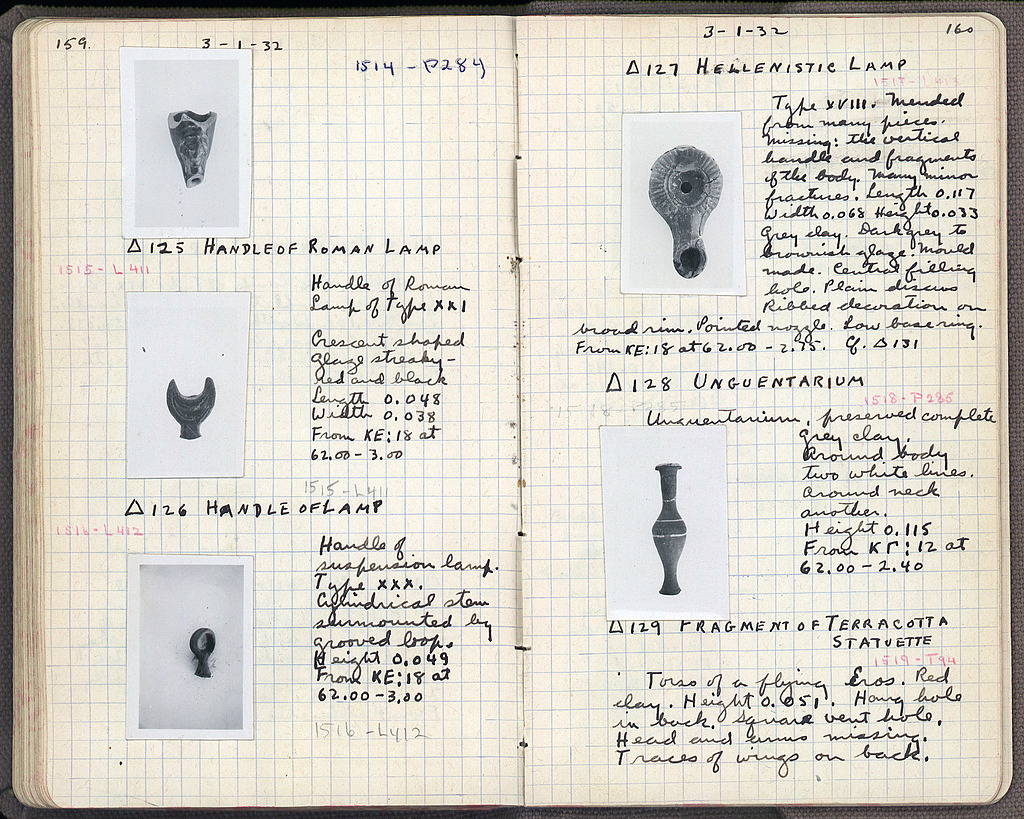 159.
3-1-32
1514 - P284
Δ125 HANDLE OF ROMAN LAMP
1515 - L 411
Handle of Roman
Lamp of Type XXI
Crescent shaped
glaze streaky -
red and black
Length 0.048
Width 0.038
From KE:18 at
62.00 - 3.00
1515 - L411
Δ126 HANDLE OF LAMP
1516 - L412
Handle of
suspension lamp.
Type XXX.
Cylindrical stem
surmounted by
grooved loop.
Height 0.049
From KE:18 at
62.00 - 3.00
1516 - L412
3-1-32
160
Δ127 HELLENISTIC LAMP
1517 - L413
Type XVIII. Mended
from many pieces.
Missing: the vertical
handle and fragments
of the body. Many minor
fractures. Length 0.117
Width 0.068 Height 0.033
Grey clay. Dark grey to
brownish glaze. Mould
made. Central filling
hole. Plain discus
Ribbed decoration on
broad rim. Pointed nozzle. Low base ring.
From KE:18 at 62.00 - 2.75. Cf. Δ131
Δ128 UNGUENTARIUM
1518 - P285
Unguentarium, preserved complete
grey clay.
Around body
two white lines.
around neck
another.
Height 0.115
From KΓ:12 at
62.00 - 2.40
Δ129 FRAGMENT OF TERRACOTTA
STATUETTE
1519 - T94
Torso of a flying Eros. Red
clay. Height 0.051. Hang hole
in back. Square vent hole.
Head and arms missing.
Traces of wings on back.